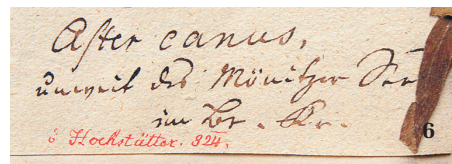 Aster canus,
unweit des Mönitzer See
im Br. Kr.
Hochstätter. 824.
6